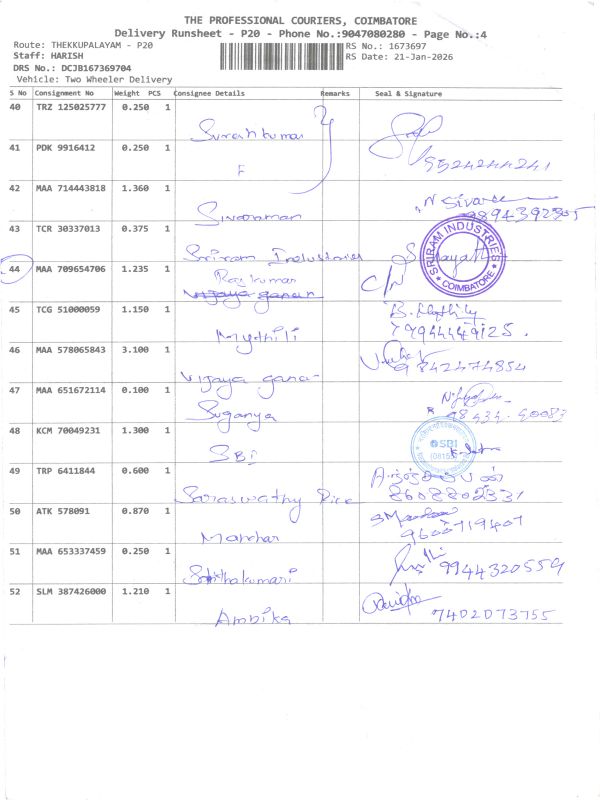 THE PROFESSIONAL COURIERS, COIMBATORE
Delivery Runsheet - P20 - Phone No.:9047080280 - Page No.:4
Route: THEKKUPALAYAM - P20
RS No.: 1673697
Staff: HARISH
RS Date: 21-Jan-2026
DRS No.: DCJB167369704
Vehicle: Two Wheeler Delivery
S No Consignment No Weight PCS Consignee Details Remarks Seal & Signature
40 TRZ 125025777 0.250 1
Sureshkumar
41 PDK 9916412 0.250 1
9524244241
F
42 MAA 714443818 1.360 1
N Sivaraman
9894392305
43 TCR 30337013 0.375 1
Sriram Industries
SRIRAM INDUSTRIES
COIMBATORE
44 MAA 709654706 1.235 1
Raj kumar
C/N
Vijaya ganan
45 TCG 51000059 1.150 1
Mythili
9944449125.
46 MAA 578065843 3.100 1
9842474854
Vijaya gana-
47 MAA 651672114 0.100 1
Suganya
48 KCM 70049231 1.300 1
SBI
SBI
49 TRP 6411844 0.600 1
Saraswathy Rice
8608802331
50 ATK 578091 0.870 1
Manohar
9600719407
51 MAA 653337459 0.250 1
Sabithakumari
9944320559
52 SLM 387426000 1.210 1
Ambika
7402073755